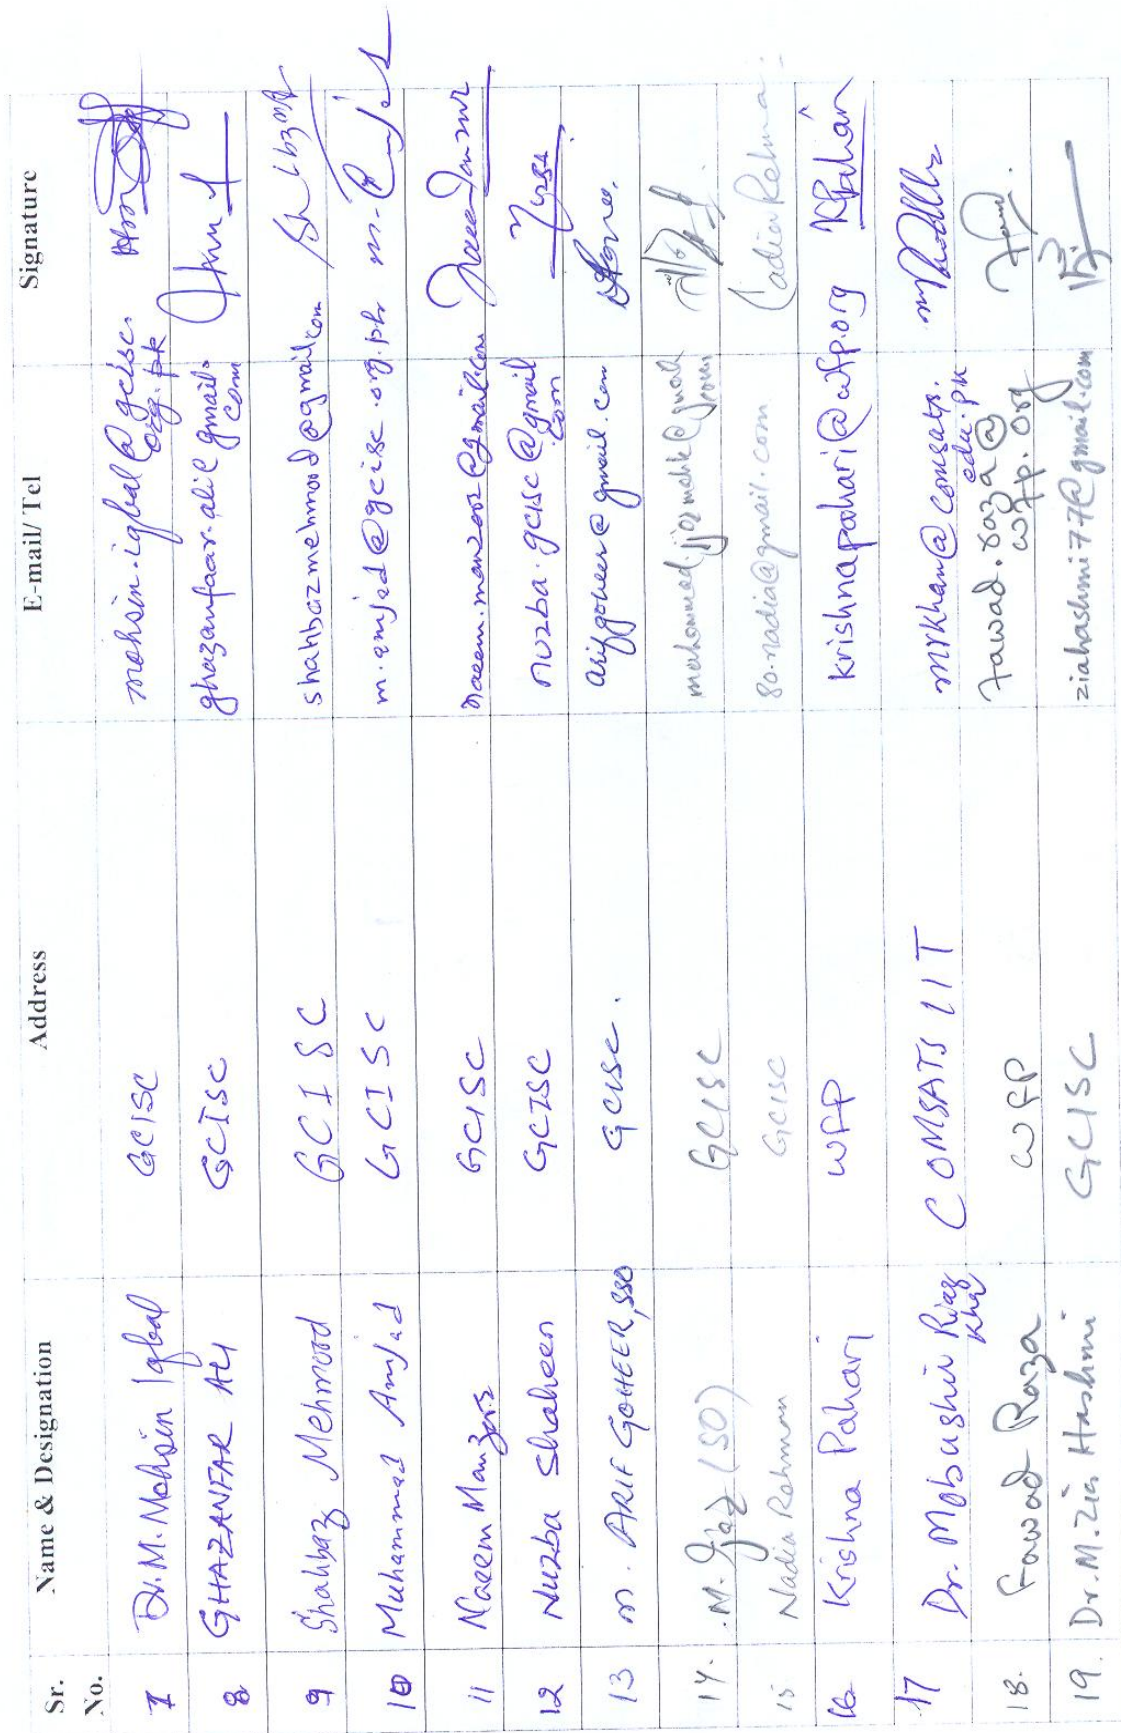 Sr. No. Name & Designation Address E-mail/ Tel Signature
7 Dr. M. Mohsin Iqbal GCISC mohsin.iqbal@gcisc.org.pk
8 GHAZANFAR ALI GCISC ghazanfaar.ali@gmail.com
9 Shahbaz Mehmood GCISC shahbazmehmood@gmail.com
10 Muhammad Amjad GCISC m.amjad@gcisc.org.pk
11 Naeem Manzoor GCISC
12 Nuzba Shaheen GCISC nuzba.gcisc@gmail.com
13 M. ARIF GOHEER, SSO GCISC. arifgoheer@gmail.com
14. M. Ijaz (SO) GCISC
15 Nadia Rehman GCISC 80.nadia@gmail.com Nadia Rehman
16 Krishna Pahari WFP krishnapahari@wfp.org KPahari
17 Dr. Mobushir Riaz Khan COMSATS IIT mrkhan@comsats.edu.pk
18. Fawad Raza WFP fawad.raza@wfp.org
19. Dr. M. Zia Hashmi GCISC ziahashmi77@gmail.com